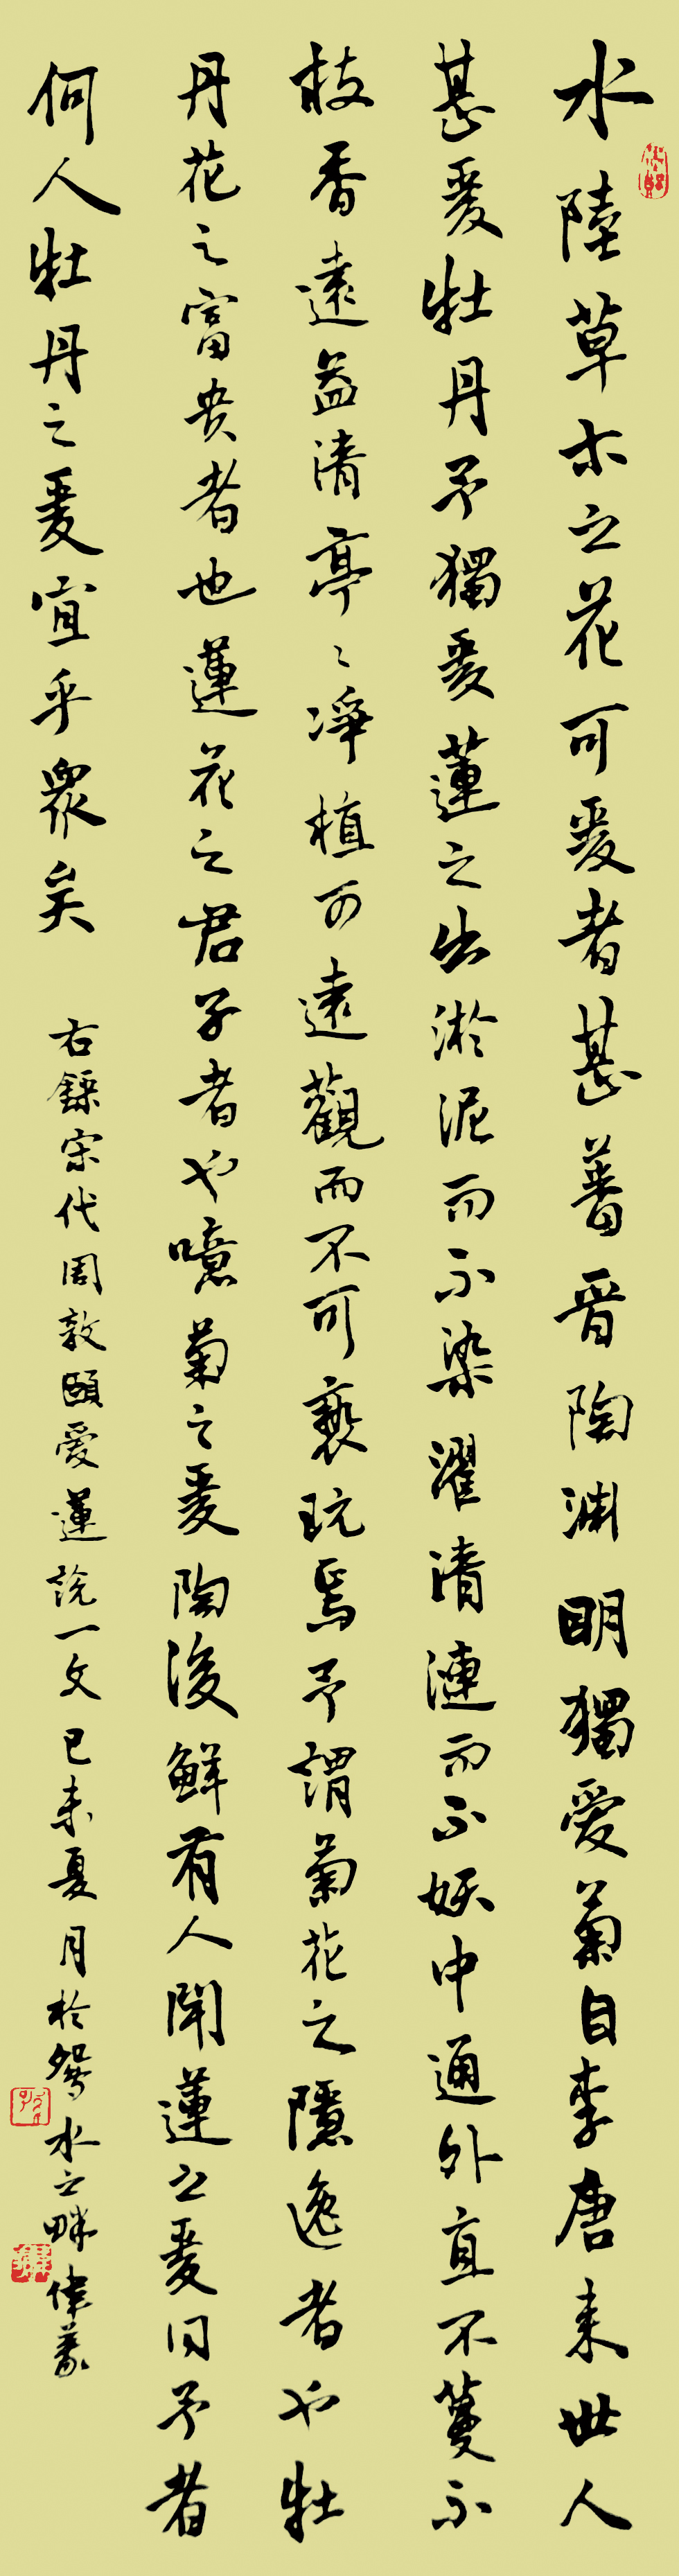 水陸草木之花可愛者甚蕃晉陶淵明獨愛菊自李唐来世人
甚愛牡丹予獨愛蓮之出淤泥而不染濯清漣而不妖中通外直不蔓不
枝香遠益清亭々凈植可遠觀而不可褻玩焉予謂菊花之隱逸者也牡
丹花之富貴者也蓮花之君子者也噫菊之愛陶後鮮有人聞蓮之愛同予者
何人牡丹之愛宜乎眾矣 右錄宋代周敦頤愛蓮説一文己未夏月於鴛水之畔偉